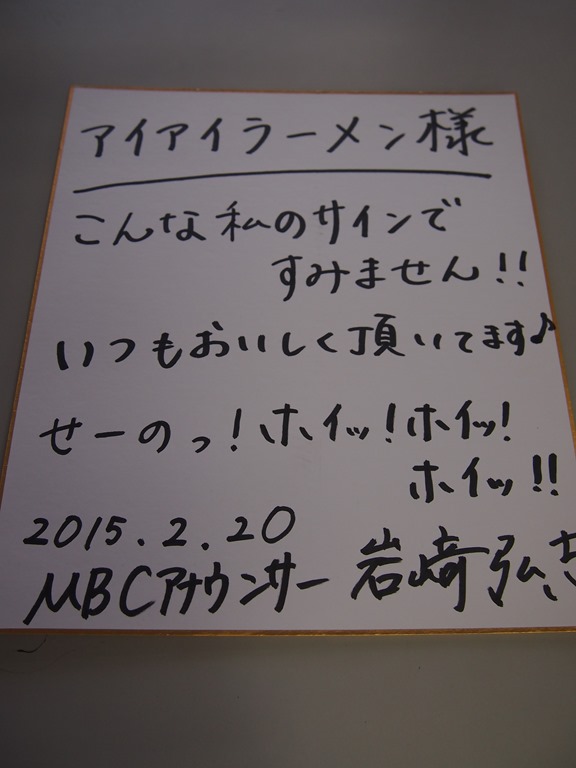 アイアイラーメン様
こんな私のサインで
すみません!!
いつもおいしく頂いてます♪
せーのっ!ホイッ!ホイッ!
ホイッ!!
2015.2.20
MBCアナウンサー 岩﨑弘志